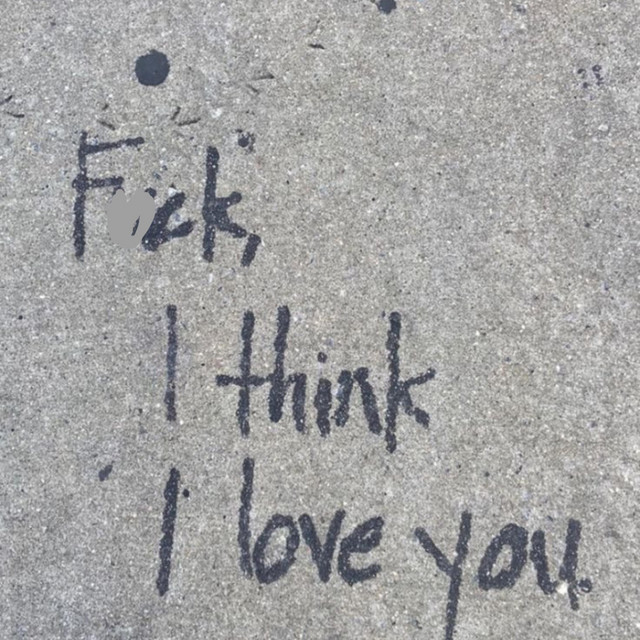 Fuck,
I think
I love you.